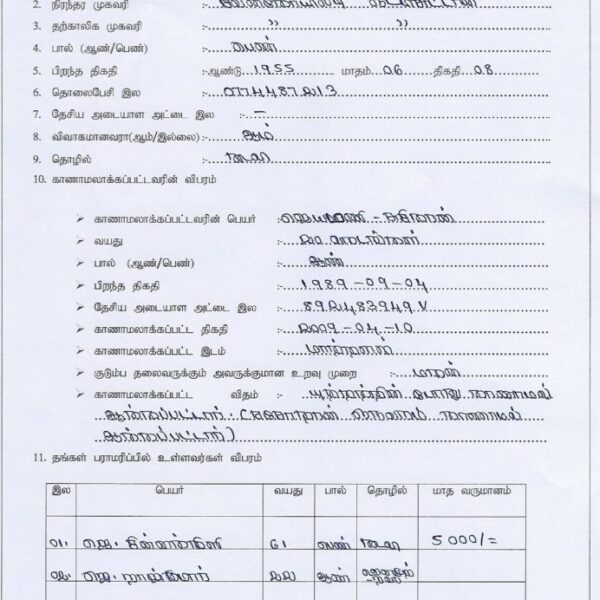 2. நிரந்தர முகவரி
3. தற்காலிக முகவரி :- ,, ,,
4. பால் (ஆண்/பெண்) பெண்
5. பிறந்த திகதி :-ஆண்டு 1955 மாதம் 06 திகதி 08
6. தொலைபேசி இல
7. தேசிய அடையாள அட்டை இல :- –
8. விவாகமானவரா(ஆம்/இல்லை) :- ஆம்
9. தொழில் :-
10. காணாமலாக்கப்பட்டவரின் விபரம்
➢ காணாமலாக்கப்பட்டவரின் பெயர் :-
➢ வயது :-
➢ பால் (ஆண்/பெண்) :- ஆண்
➢ பிறந்த திகதி :- 1989-09-04
➢ தேசிய அடையாள அட்டை இல :- 892483949V
➢ காணாமலாக்கப்பட்ட திகதி :- 2009-04-10
➢ காணாமலாக்கப்பட்ட இடம் :- மாத்தளன்
➢ குடும்ப தலைவருக்கும் அவருக்குமான உறவு முறை :- மகன்
➢ காணாமலாக்கப்பட்ட விதம் :- யுத்தத்தின் போது காணாமல்
ஆக்கப்பட்டார். காணாமல்
ஆக்கப்பட்டார்)
11. தங்கள் பராமரிப்பில் உள்ளவர்கள் விபரம்
இல பெயர் வயது பால் தொழில் மாத வருமானம்
01. ஜெ. 61 பெண் 5000/=
02. ஜெ. 22 ஆண்